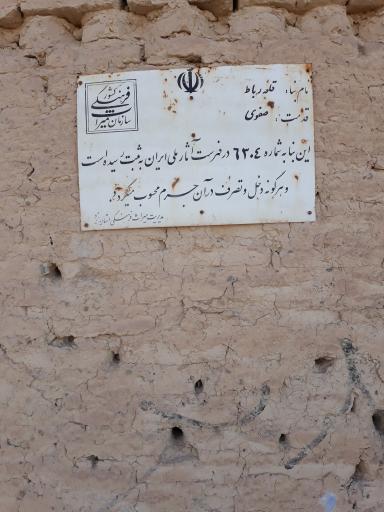 سازمان میراث فرهنگی کشور
نام بنا: قلعه رباط
قدمت: صفوی
این بنا به شماره ۶۲۰۴ در فهرست آثار ملی ایران به ثبت رسیده است
و هرگونه دخل و تصرف در آن جرم محسوب میگردد.
مدیریت میراث فرهنگی استان یزد